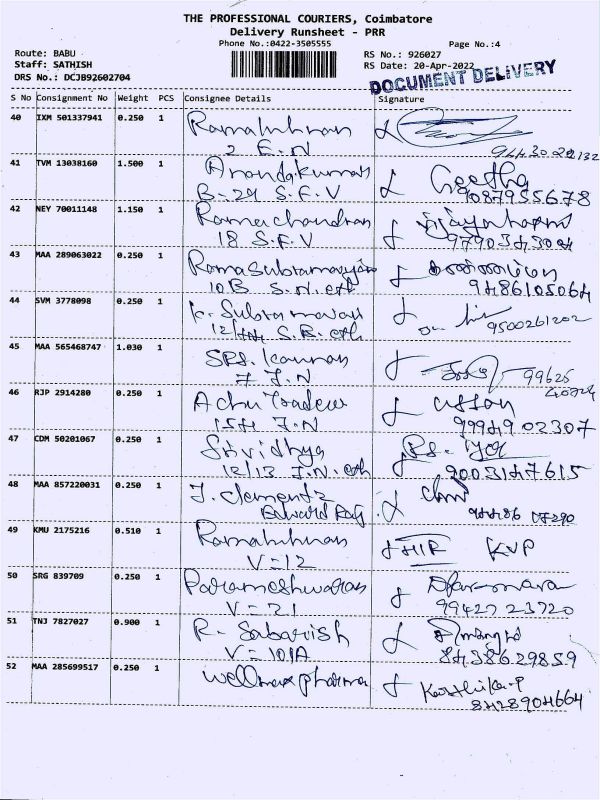 THE PROFESSIONAL COURIERS, Coimbatore
Delivery Runsheet - PRR
Phone No.:0422-3505555
Page No.:4
Route: BABU
RS No.: 926027
Staff: SATHISH
RS Date: 20-Apr-2022
DRS No.: DCJB92602704
DOCUMENT DELIVERY
S No Consignment No Weight PCS Consignee Details Signature
40 IXM 501337941 0.250 1
2 E.N
41 TVM 13038160 1.500 1 Anandakumar Geetha
B-29 S.F.V 9087955678
42 NEY 70011148 1.150 1 Ramachandran
18 S.F.V
43 MAA 289063022 0.250 1 Ramasubramaniyan
10B S.N. 9486105064
44 SVM 3778098 0.250 1 K. Subramanian
S.B. 9500261202
45 MAA 565468747 1.030 1 SRS. Kannan
7 J.N 99625
46 RJP 2914280 0.250 1 Achu Traders
J.N 9994902307
47 CDM 50201067 0.250 1 Srividhya
12/13 J.N. 9003147615
48 MAA 857220031 0.250 1 J. Clement
Edward Raj
49 KMU 2175216 0.510 1 KVP
V-12
50 SRG 839709 0.250 1 Parameshwaran
V-21 9942723720
51 TNJ 7827027 0.900 1 R. Sabarish
V-101A 8438629859
52 MAA 285699517 0.250 1 wellmax pharma Karthika.P
8428904664